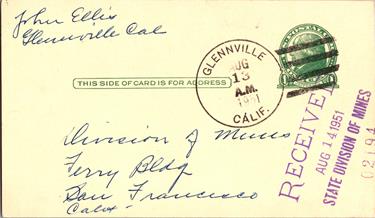 John Ellis
Glennville Cal
THIS SIDE OF CARD IS FOR ADDRESS
GLENNVILLE
AUG
13
A.M.
1951
CALIF.
Division of Mines
Ferry Bldg
San Francisco
Calif
RECEIVED
AUG 14 1951
STATE DIVISION OF MINES
02194